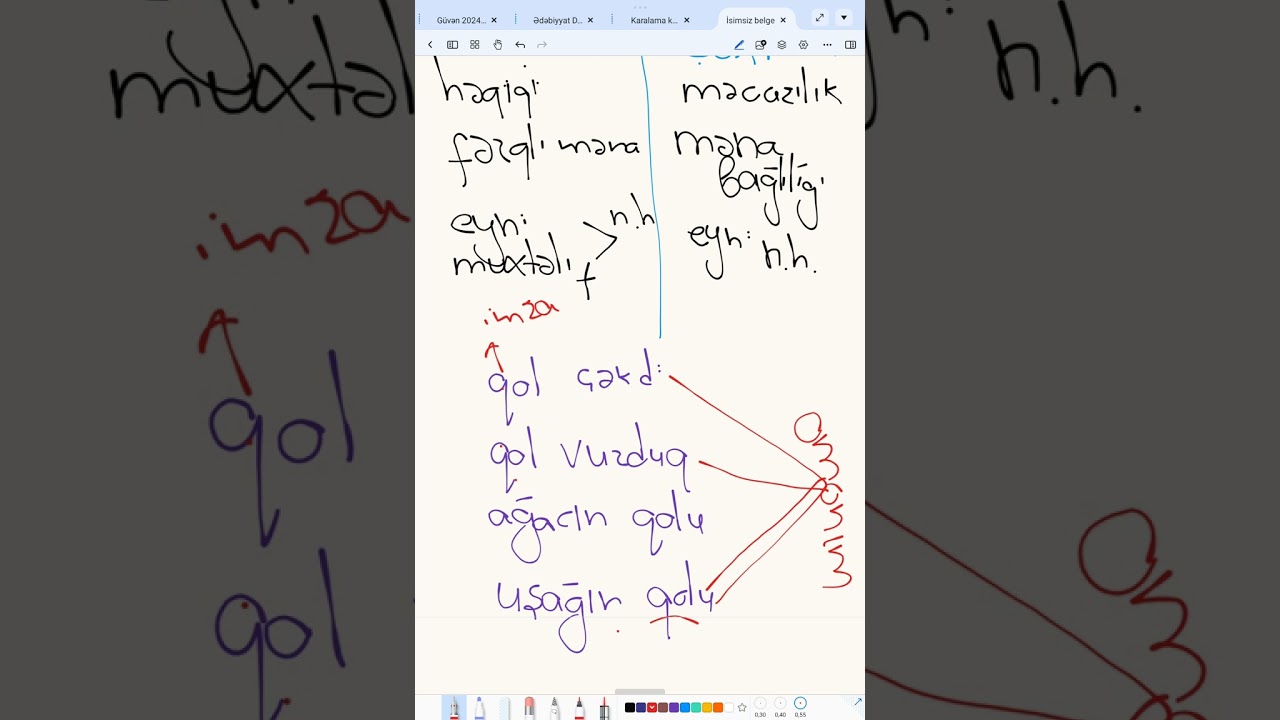 Güvən 2024...
Ədəbiyyat D...
Karalama k...
İsimsiz belge
həqiqi
məcazılık
fərqli məna
məna
bağlılığı
eyni
müxtəlif > n.h
eyni n.h.
imza
qol çəkdi
qol vurduq
ağacın qolu
uşağın qolu
omonim
0,30 0,40 0,55